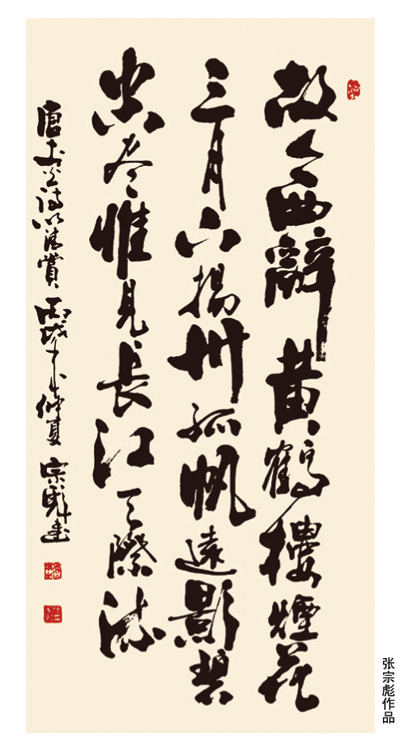 故人西辭黄鶴樓煙花
三月下揚州孤帆遠影碧
空尽惟見長江天際流
唐李白詩以清賞 丙戌年仲夏 宗彪書
张宗彪作品